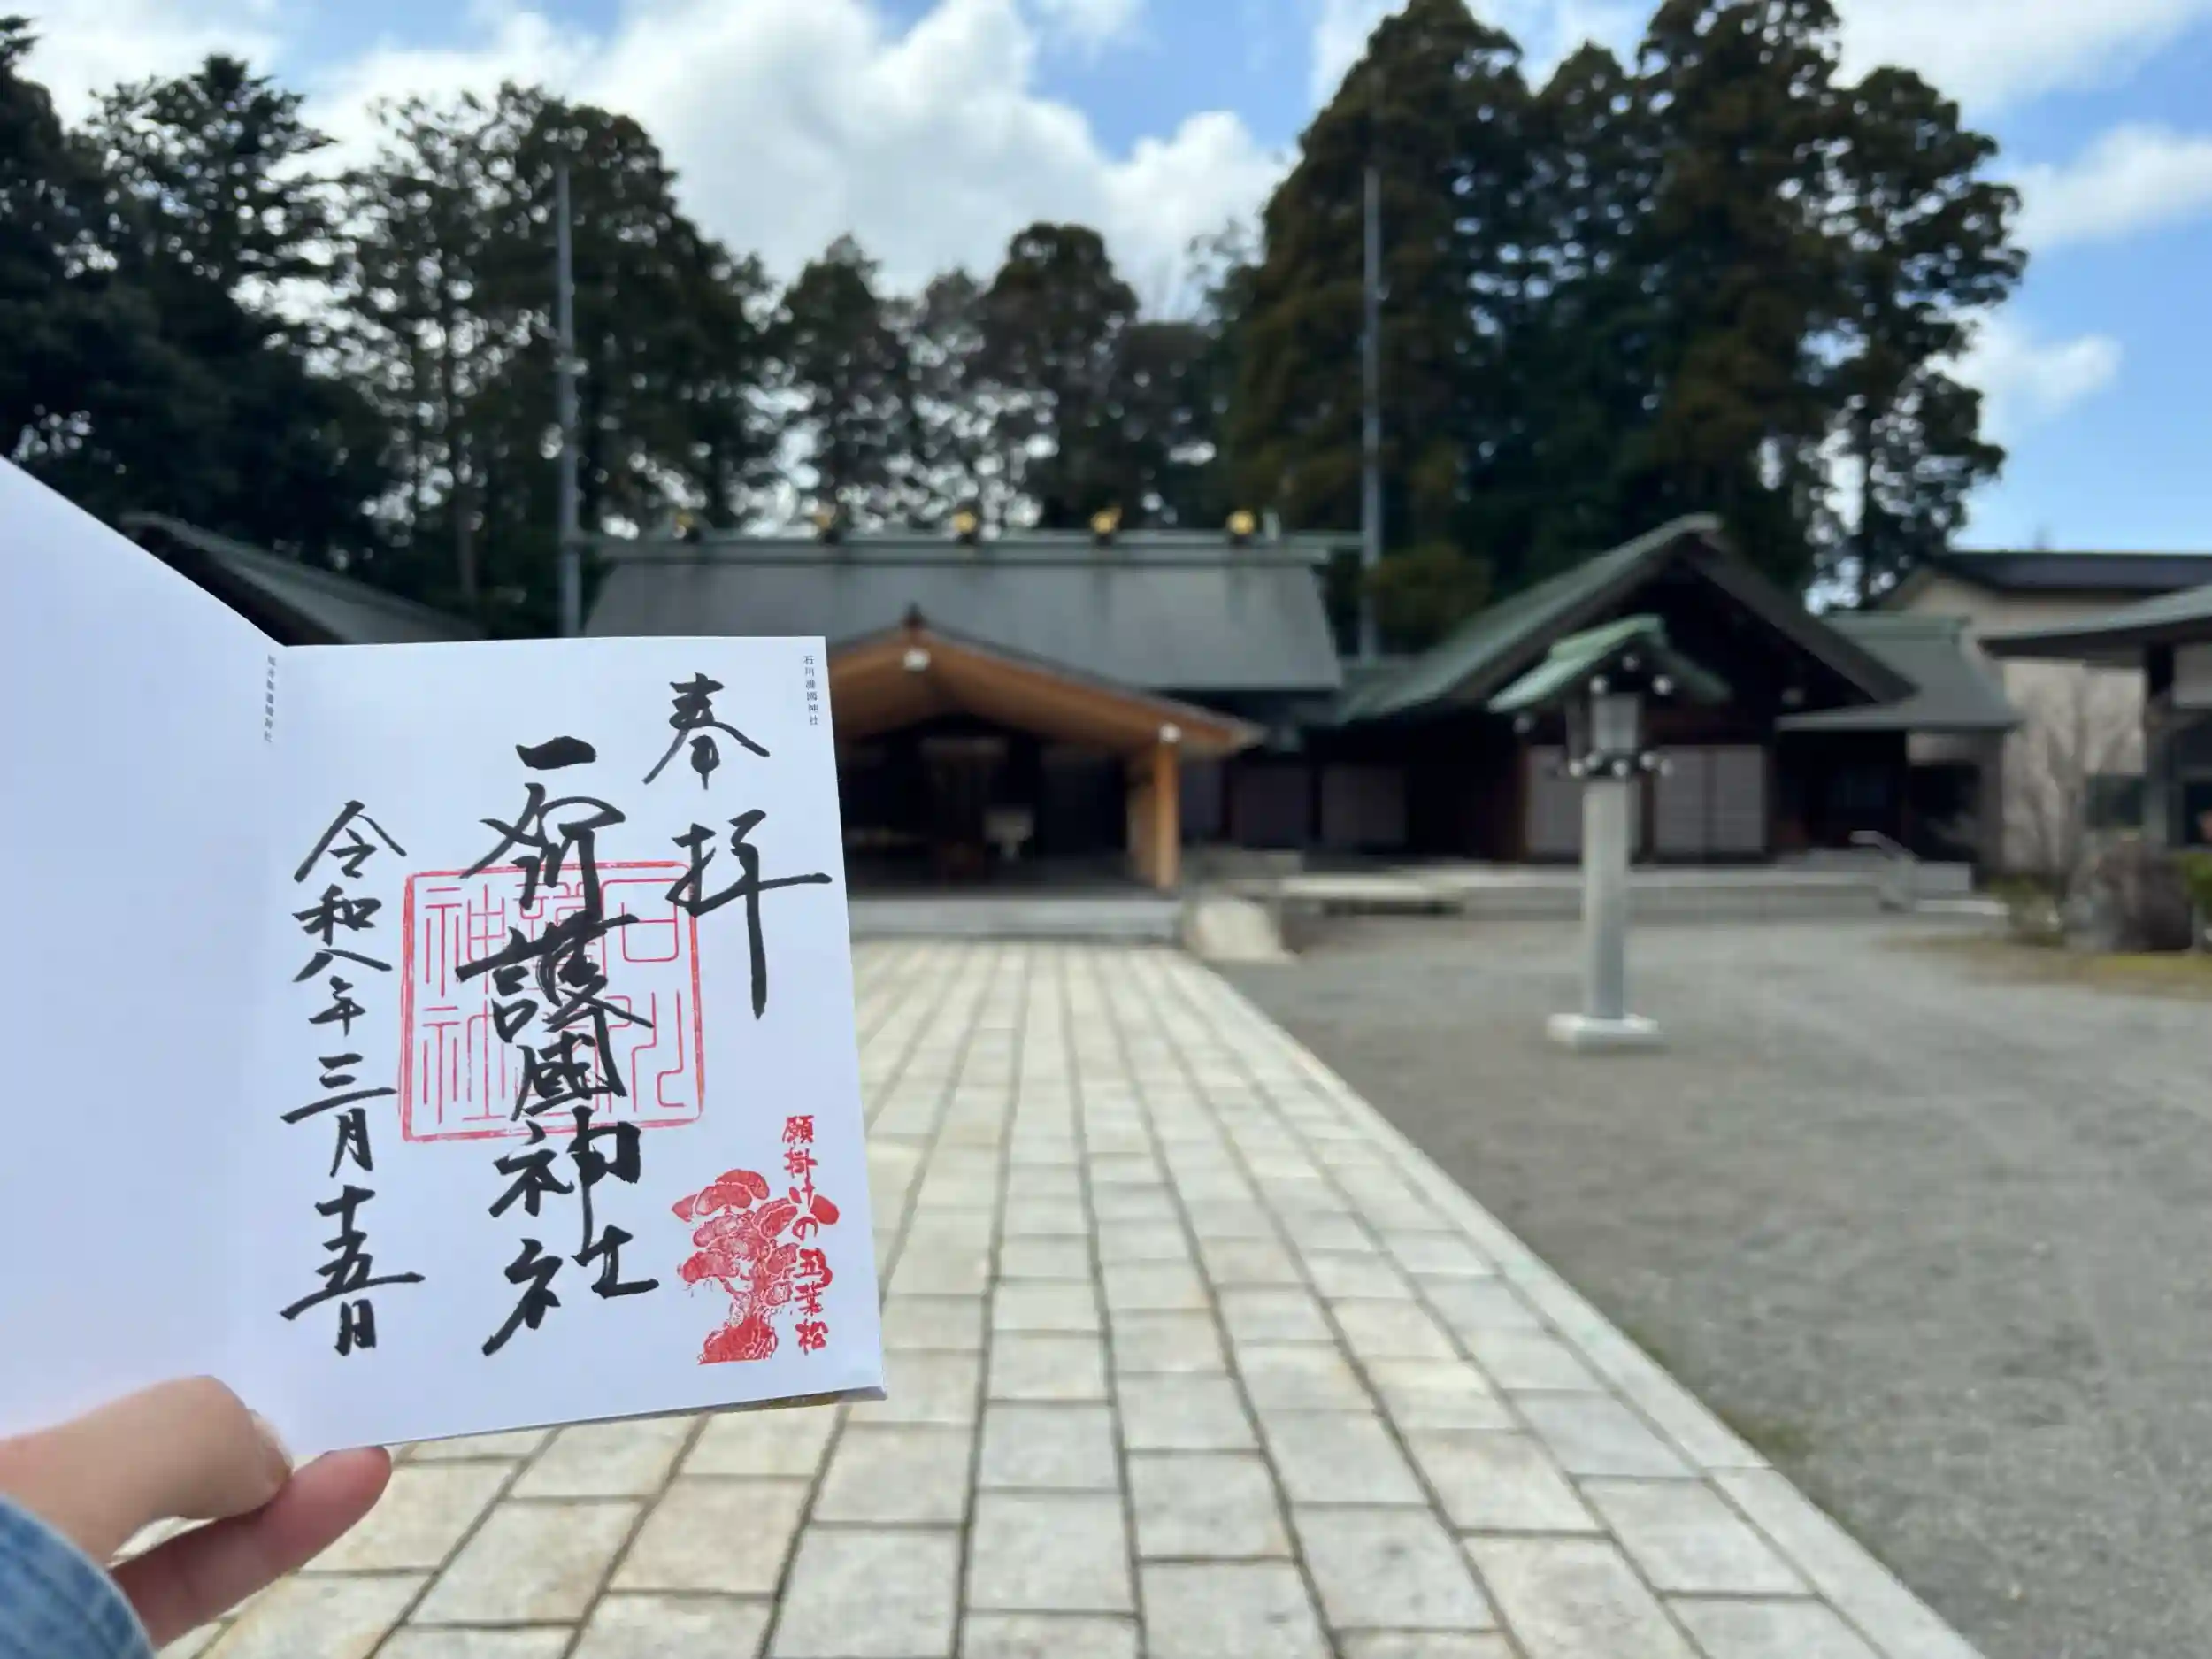 石川護國神社
奉拝
石川護國神社
石川護國神社
願掛けの五葉松
令和八年三月十五日